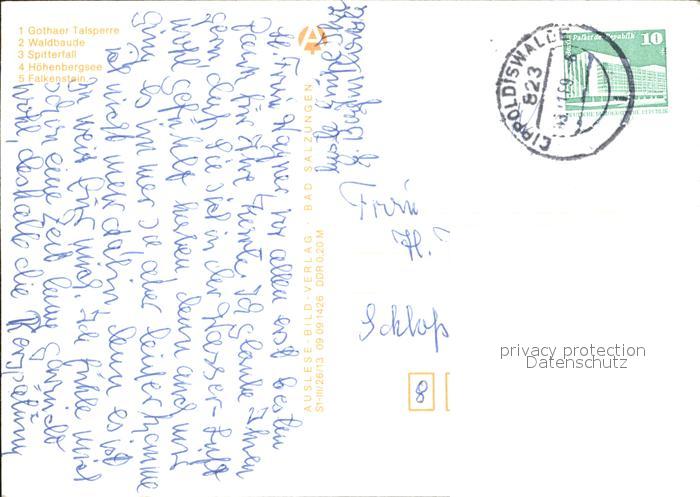 1 Gothaer Talsperre
2 Waldbaude
3 Spitterfall
4 Höhenbergsee
5 Falkenstein
AUSLESE-BILD-VERLAG BAD SALZUNGEN
S1-III/26/13 09 09 1426 DDR 0,20 M
Frau vor allem erst besten
Dank für Ihre Karte. Ich glaube Ihnen
gern, daß Sie sich in der
wohl gefühlt haben denn auch mir
ging es immer so aber leider komme
ich nicht mehr dahin denn es ist
zu weit für mich. Ich fühle mich
schon eine Zeit lang nicht
wohl, deshalb die Verspätung
Frau
H.
Schloß
8
DIPPOLDISWALDE
823
10
DEUTSCHE DEMOKRATISCHE REPUBLIK
privacy protection
Datenschutz